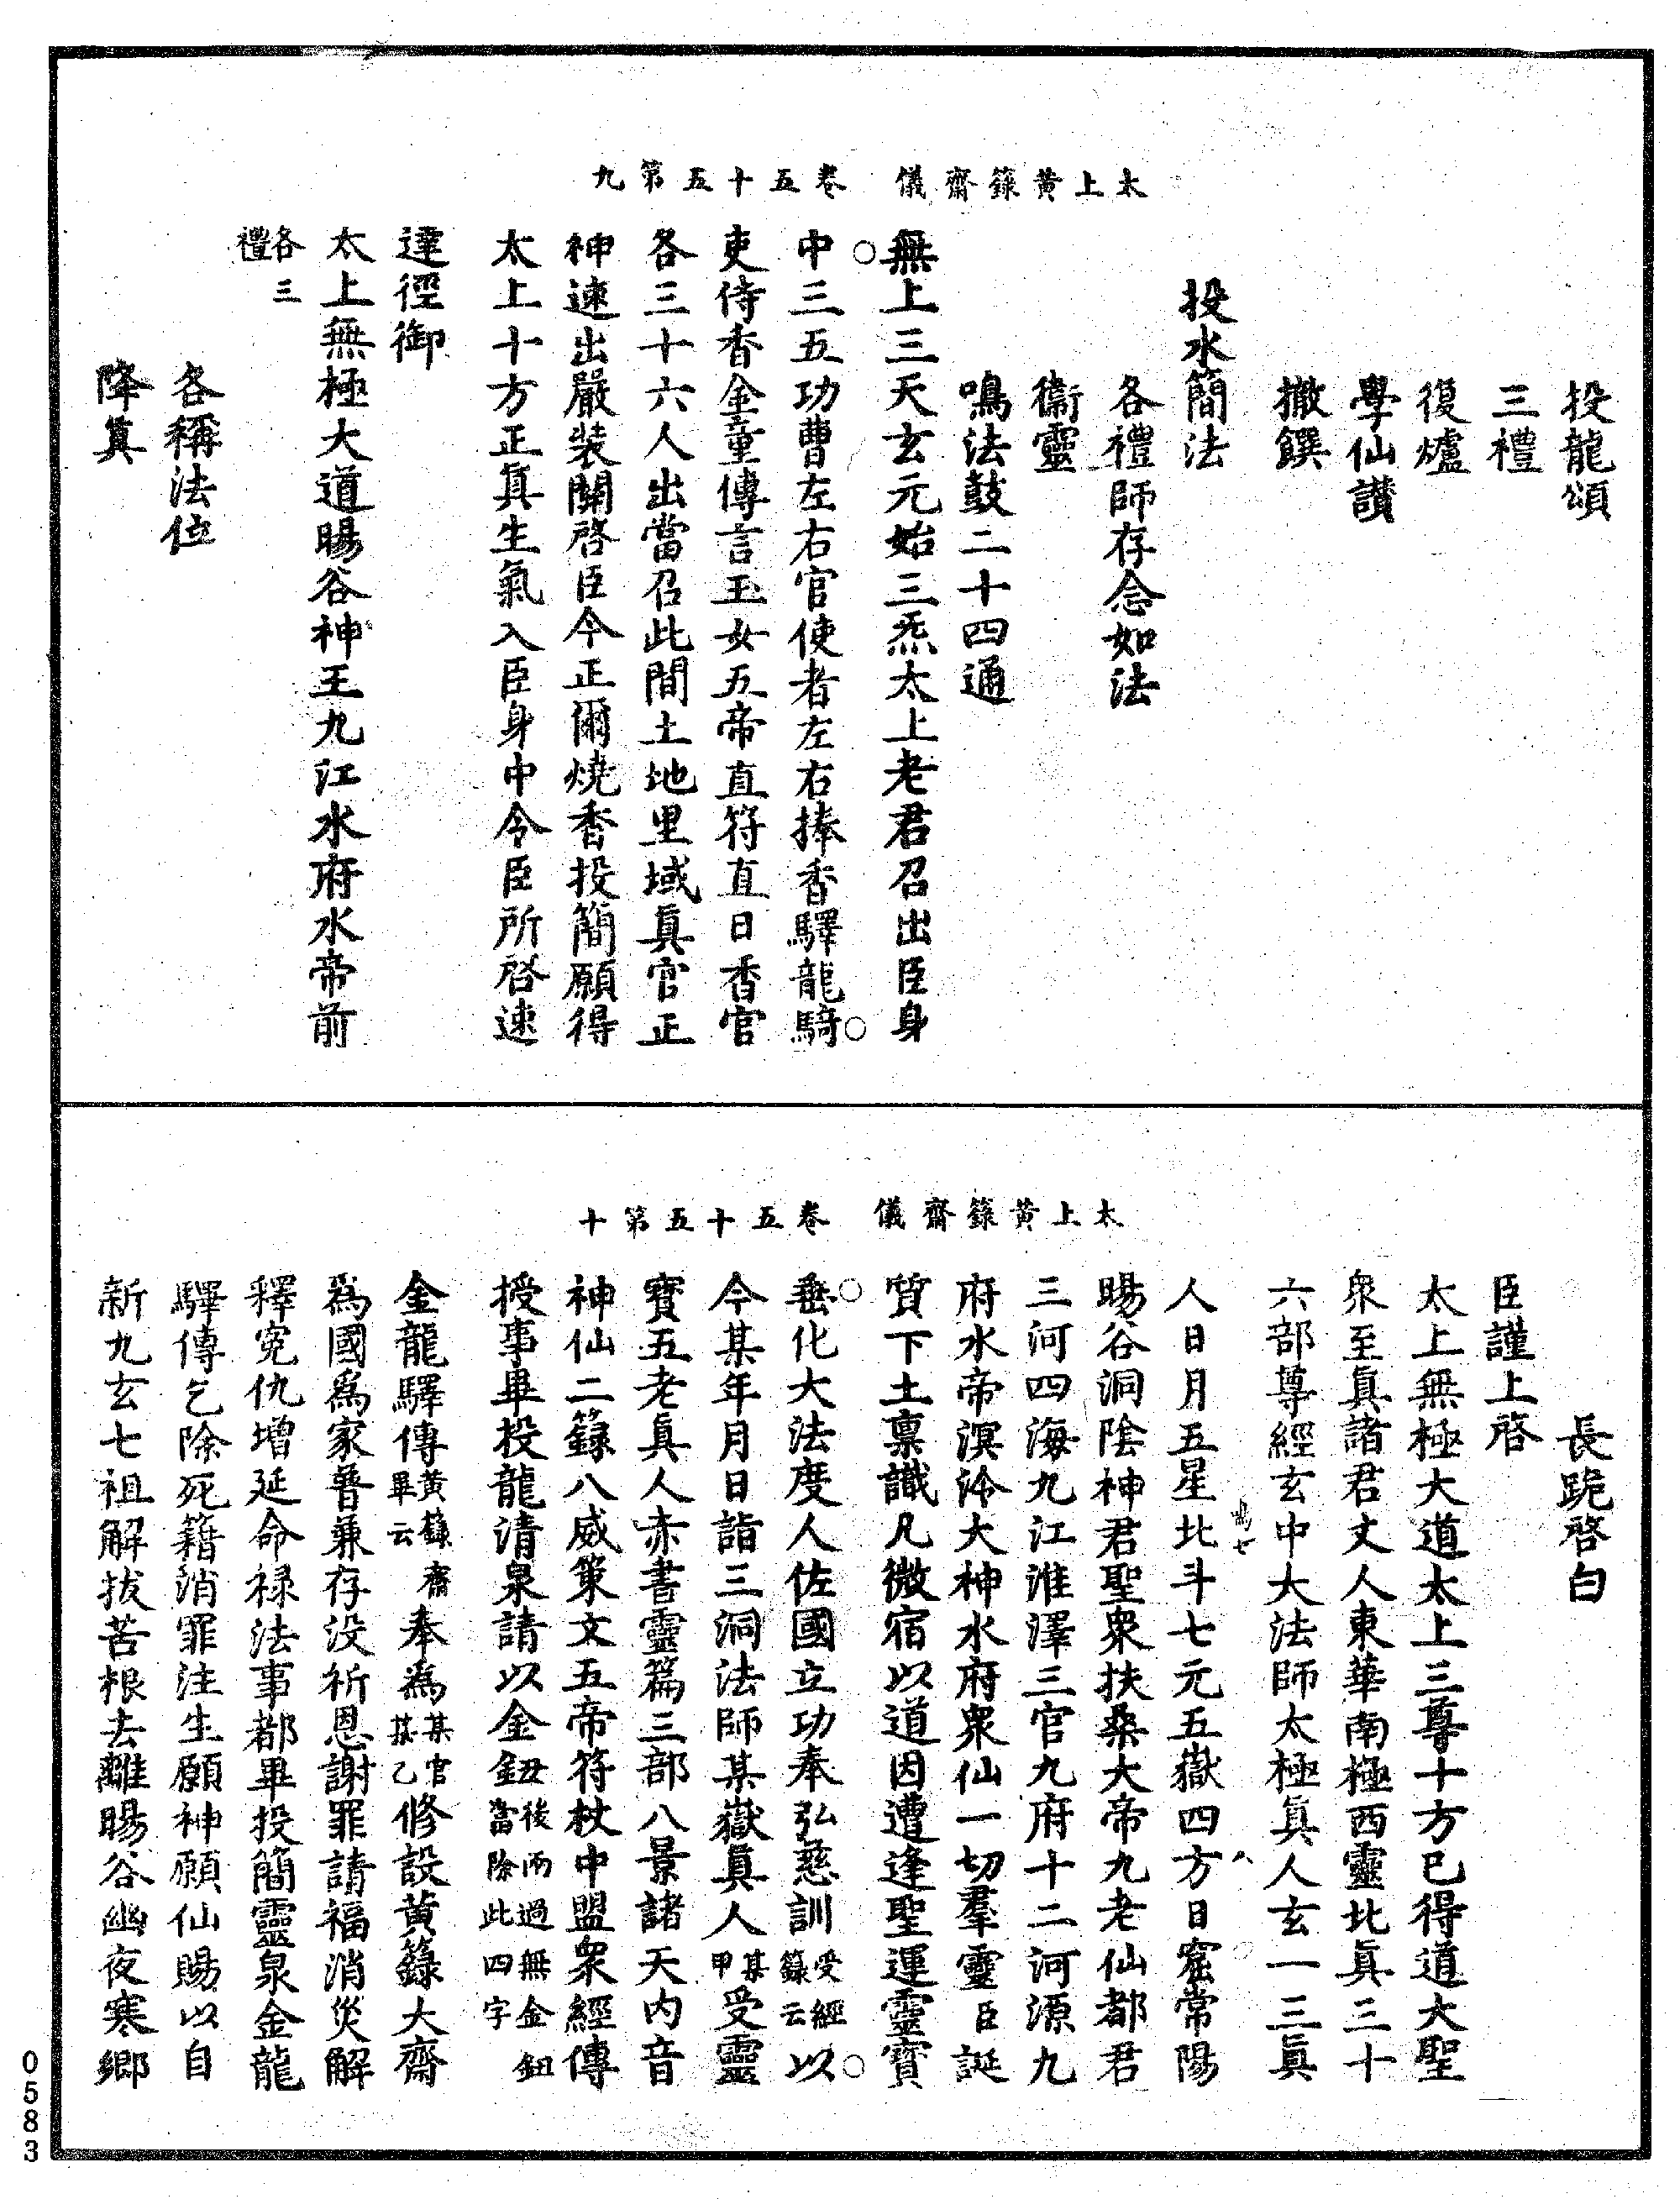 太上黃籙齋儀　卷五十五第九
投龍頌
三禮
復爐
學仙讚
撤饌
投水簡法
各禮師存念如法
衞靈
鳴法鼓二十四通
無上三天玄元始三炁太上老君召出臣身
中三五功曹左右官使者左右捧香驛龍騎
吏侍香金童傳言玉女五帝直符直日香官
各三十六人出當召此間土地里域眞官正
神速出嚴裝關啓臣今正爾燒香投簡願得
太上十方正眞生氣入臣身中令臣所啓速
達徑御
太上無極大道暘谷神王九江水府水帝前
各三
禮
各稱法位
降眞
太上黃籙齋儀　卷五十五第十
長跪啓白
臣謹上啓
太上無極大道太上三尊十方已得道大聖
衆至眞諸君丈人東華南極西靈北眞三十
六部尊經玄中大法師太極眞人玄一三眞
人日月五星北斗七元五嶽四方日窟常陽
暘谷洞陰神君聖衆扶桑大帝九老仙都君
三河四海九江淮澤三官九府十二河源九
府水帝溟泠大神水府衆仙一切羣靈臣誕
質下土禀識凡微宿以道因遭逢聖運靈寶
垂化大法度人佐國立功奉弘慈訓受經籙云以
今某年月日詣三洞法師某嶽眞人某甲受靈
寶五老眞人赤書靈篇三部八景諸天内音
神仙二籙八威策文五帝符杖中盟衆經傳
授事畢投龍清泉請以金鈕後兩過無金鈕當除此四字
金龍驛傳黃籙齋畢云奉爲某官某乙修設黃籙大齋
爲國爲家普兼存没祈恩謝罪請福消災解
釋寃仇增延命禄法事都畢投簡靈泉金龍
驛傳乞除死籍消罪注生願神願仙賜以自
新九玄七祖解拔苦根去離暘谷幽夜寒鄉
0583